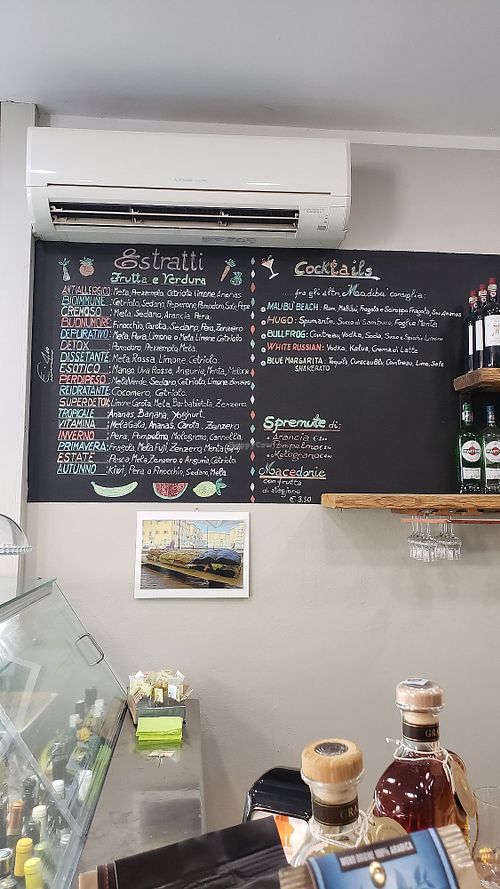 Estratti
Frutta e Verdura
ANTIALLERGICO: Mela, Prezzemolo, Cetriolo, Limone, Ananas
BIOIMMUNE: Cetriolo, Sedano, Peperone, Pomodoro, Sale, Pepe
CREMOSO: Mela, Sedano, Arancia, Pera.
BUONUMORE: Finocchio, Carota, Sedano, Pera, Zenzero
DEPURATIVO: Mela, Pera, Limone o Mela, Limone, Cetriolo
DETOX: Pomodoro, Prezzemolo, Mela.
DISSETANTE: Mela Rossa, Limone, Cetriolo.
ESOTICO: Mango, Uva Rossa, Anguria, Menta,
PERDIPESO: Mela Verde, Sedano, Cetriolo, Limone, Zenzero
REIDRATANTE: Cocomero, Cetriolo.
SUPERDETOX: Limone, Carota, Mela, Barbabietola, Zenzero.
TROPICALE: Ananas, Banana, Yoghurt.
VITAMINA: Mela Gala, Ananas, Carota, Zenzero
INVERNO: Pera, Pompelmo, Melograno, Cannella.
PRIMAVERA: Fragola, Mela Fuji, Zenzero, Menta
ESTATE: Pesca, Mela, Zenzero o Anguria, Cetriolo.
AUTUNNO: Kiwi, Pera o Finocchio, Sedano, Mela.
Cocktails
....fra gli altri, Madiba consiglia:
MALIBÙ BEACH: Rum, Malibù, Fragola e Sciroppo Fragola, Succo Ananas
HUGO: Spumante, Succo di Sambuco, Foglie Menta
BULLFROG: Cointreau, Vodka, Soda,
WHITE RUSSIAN: Vodka, Kalua, Crema di Latte
BLUE MARGARITA: Tequila, Curacaublé, Cointreau, Lime, Sale
SHAKERATO
Spremute di:
Arancia
Pompelmo
Melograno
Macedonie
con frutta
di stagione
€ 3.50
MARTINI
MARTINI
GRA
GRA
MONO ORIGINE 100% ARABICA